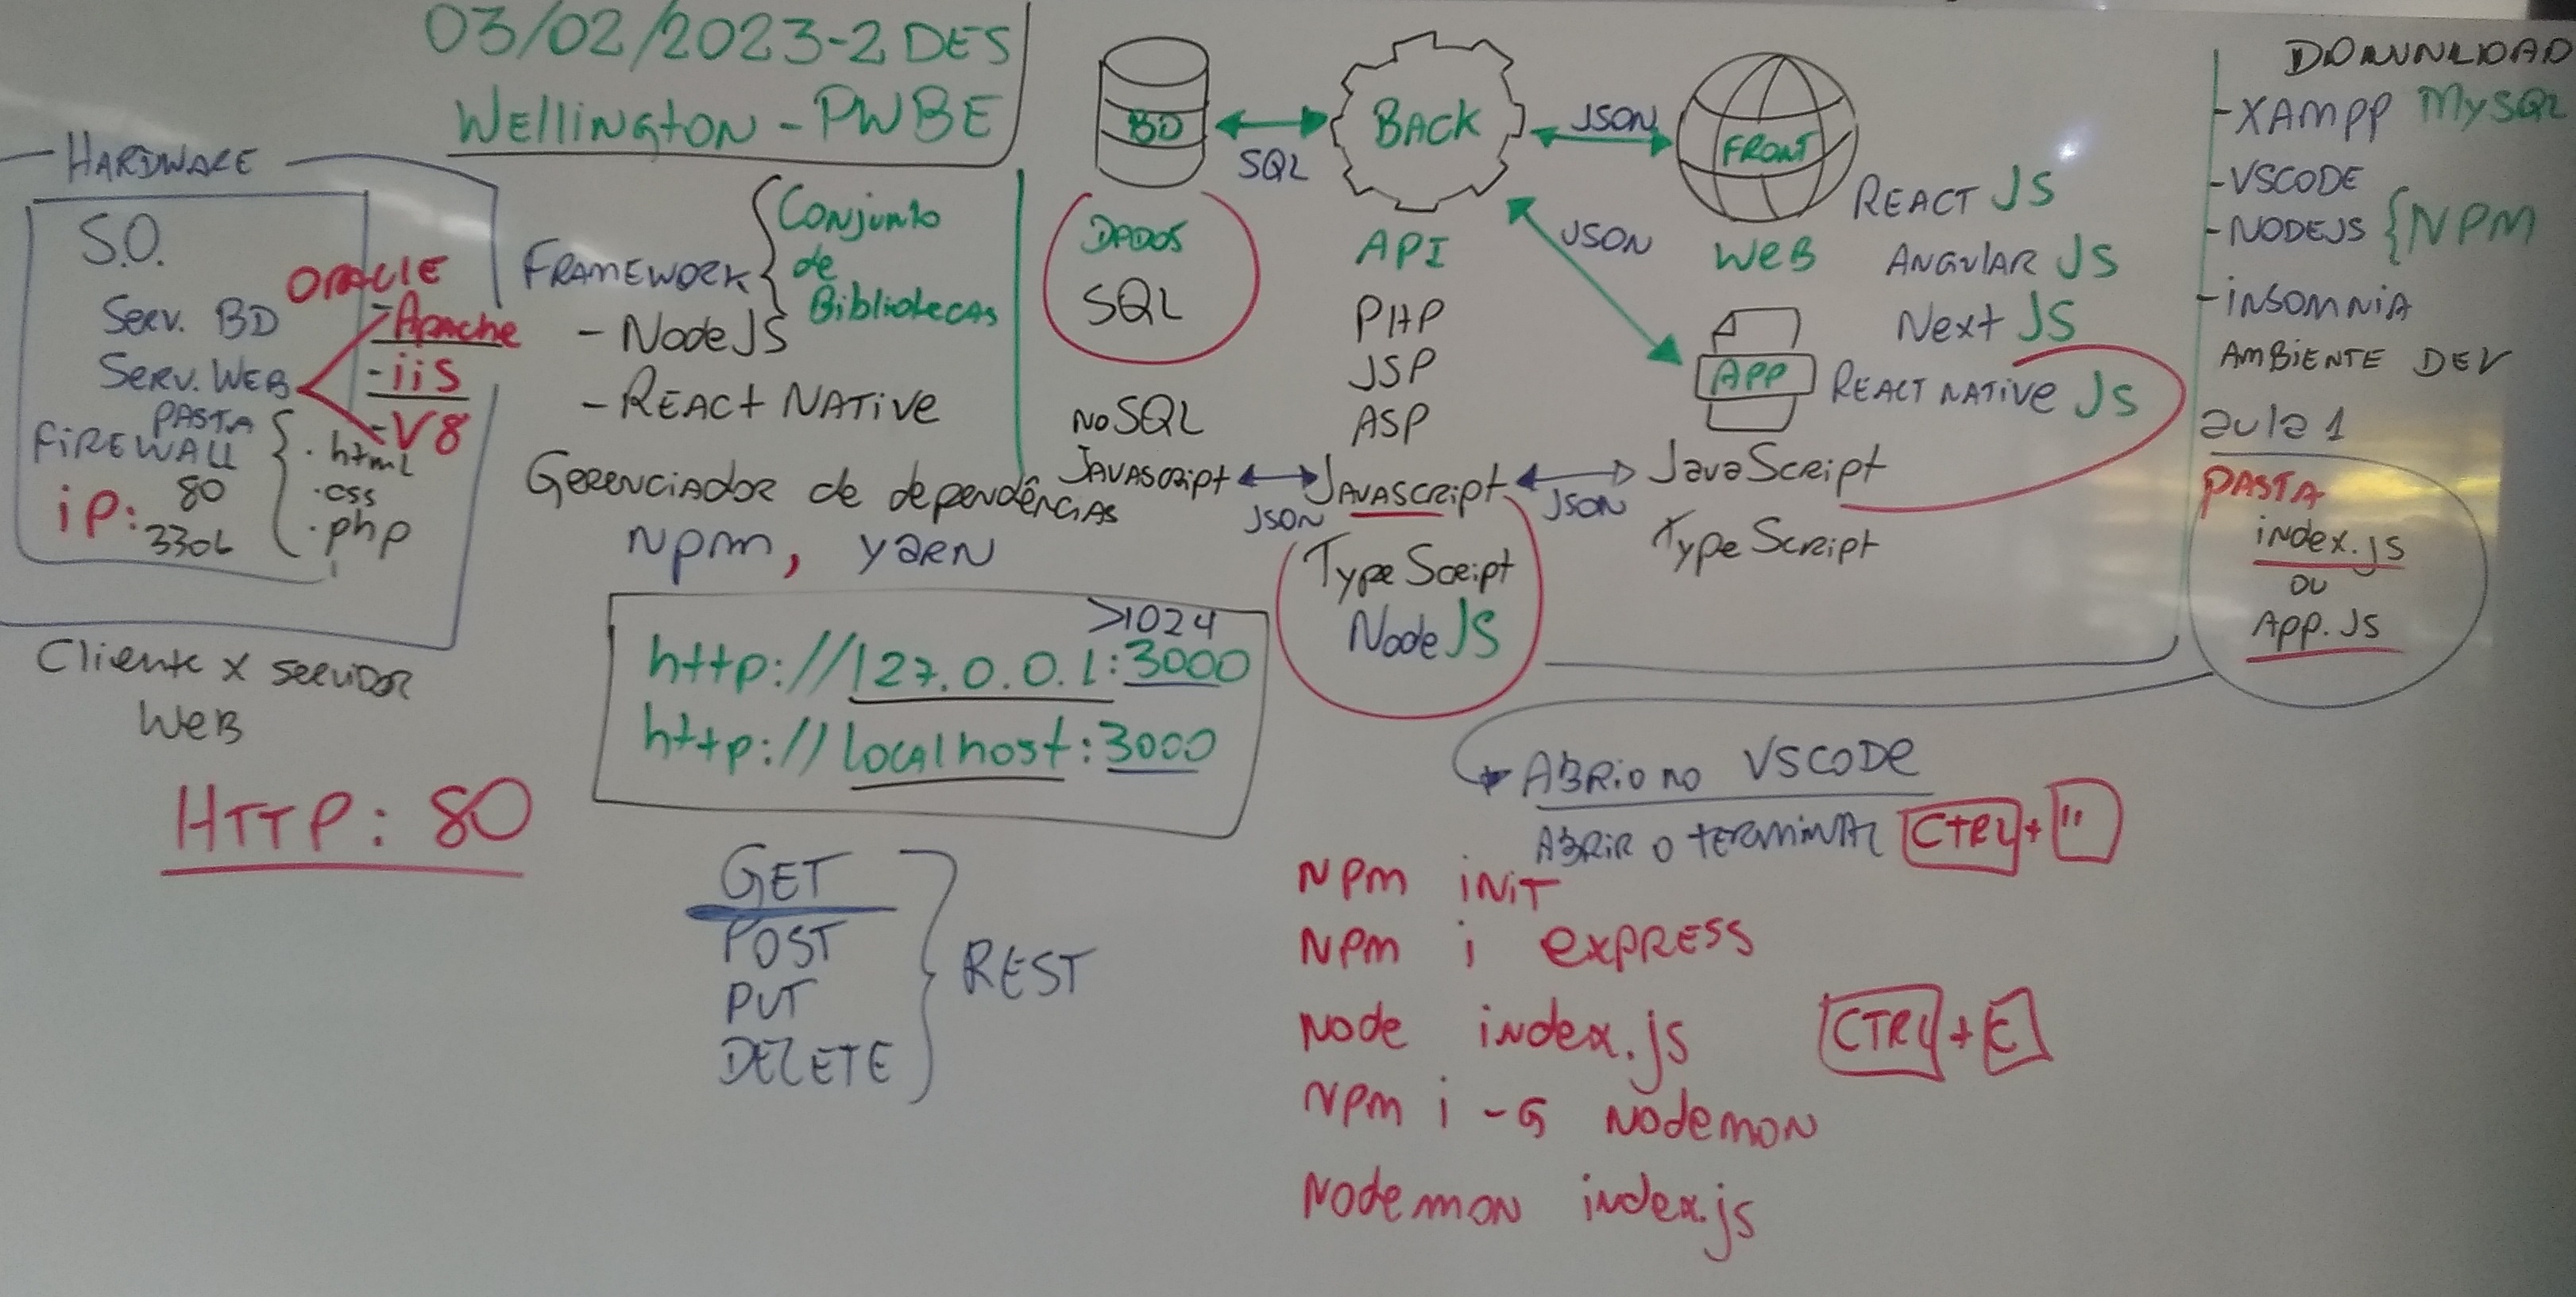 03/02/2023-2 DES
Wellington - PWBE
HARDWARE
S.O.
ORACLE
Serv. BD
Serv. WEB
- Apache
- iiS
- V8
PASTA
FiREWALL
. html
. css
. php
iP:
80
3306
Cliente x servidor
Web
HTTP: 80
FRAMEWORK
Conjunto
de
Bibliotecas
- NodeJS
- REAct NATive
Gerenciador de dependências
Npm, yarn
>1024
http://127.0.0.1:3000
http://localhost:3000
GET
POST
PUT
DELETE
REST
BD
SQL
BACK
JSON
FRONT
JSON
DADOS
SQL
NoSQL
JAVAScript
JSON
API
PHP
JSP
ASP
JAVAScript
JSON
TypeScript
NodeJS
WeB
REACT JS
ANgulAR JS
Next JS
APP
REACT NATIVE JS
JavaScript
TypeScript
DOWNLOAD
- XAMPP MySQL
- VSCODE
- NODEJS { NPM
- iNSOMNiA
AMBiENTE DEV
aula 1
PASTA
index.js
ou
App.JS
ABRio no VSCODe
ABRiR o teRmiNAL CTRL + "
Npm iNiT
Npm i expRESS
Node index.js
CTRL + C
Npm i -G Nodemon
Nodemon index.js